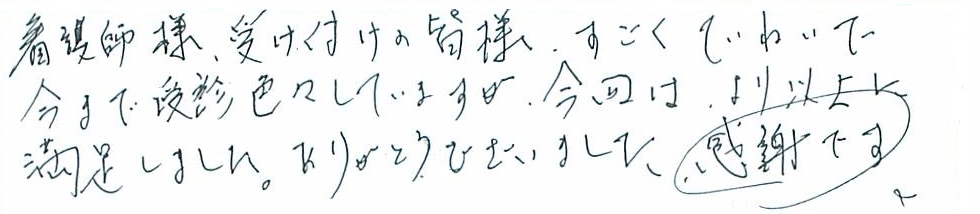 看護師様、受け付けの皆様、すごくていねいで
今まで受診色々していますが、今回は、より以上に
満足しました。ありがとうございました、感謝です